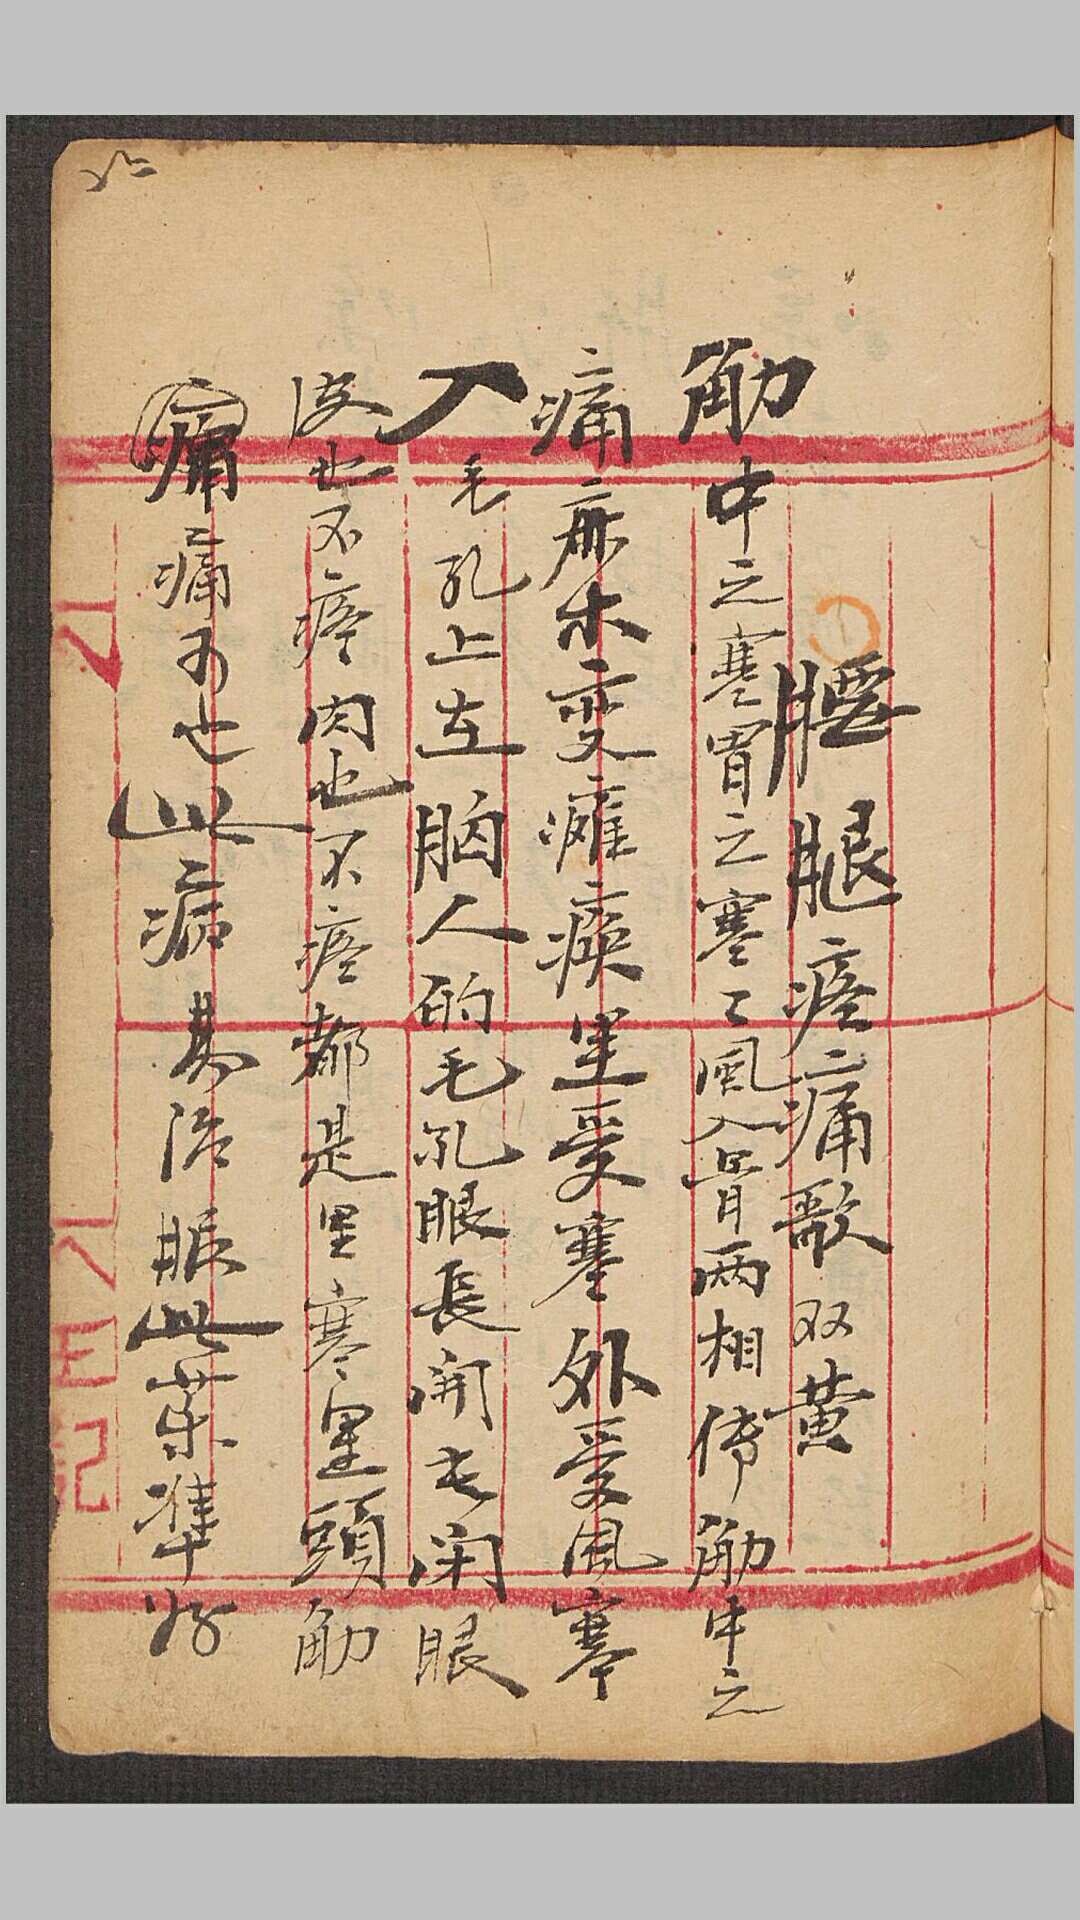 腰腿疼痛歌 双黄
觔中之寒胃之寒之風入骨兩相傳觔中之
痛麻木变瘫痪里受寒外受風寒
入毛孔上在胸人的毛孔眼長開毛闭眼
皮也不疼肉也不疼都是里寒里頭觔
痛痛不也此病易治眼此葯準好
王記